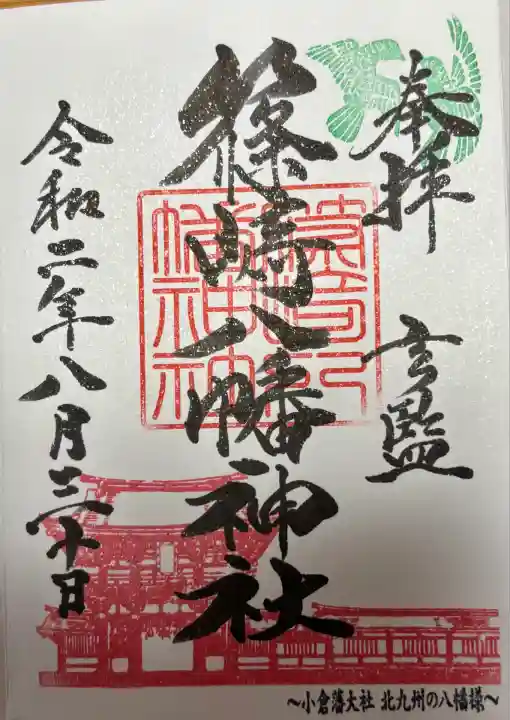 奉拝
玄監
篠崎八幡神社
篠崎八幡神社
令和二年八月三十日
～小倉藩大社 北九州の八幡様～